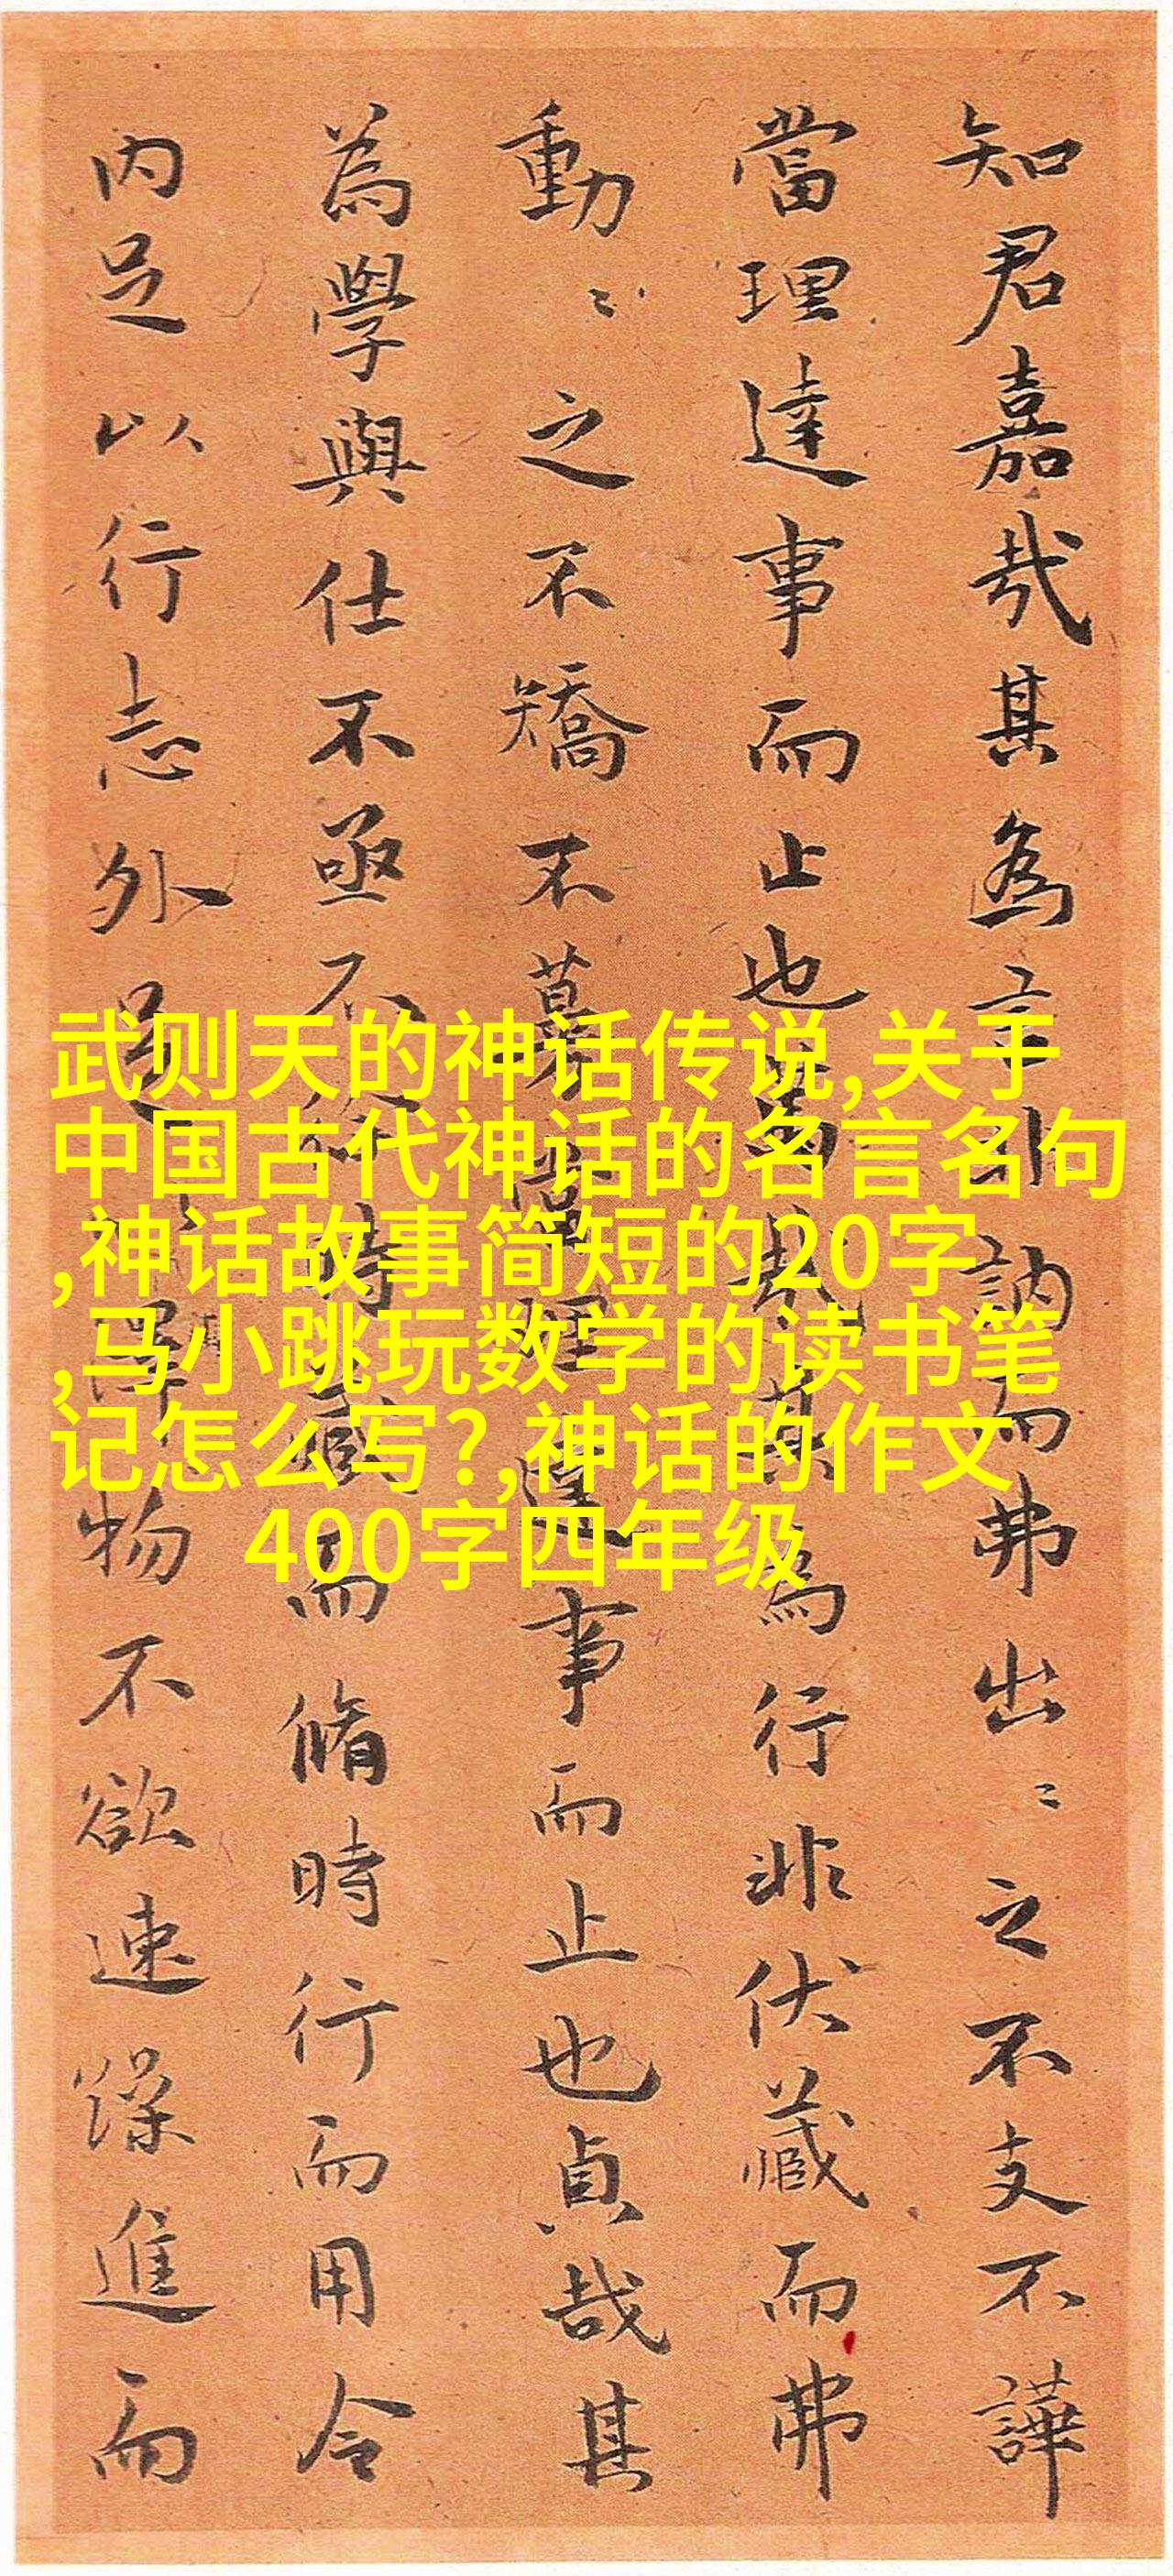 知君嘉哉其為言非訥而弗出〻之不支不譁
當理達事而止也哉其為行非伏藏而弗
動〻之不矯不慕當理達事而止也貞哉其
為學與仕不亟不時藏而脩時行而用令
内足以行志外足以澤物不欲速躁進而
武则天的神话传说,关于
中国古代神话的名言名句
,神话故事简短的20字
,马小跳玩数学的读书笔
记怎么写?,神话的作文
400字四年级